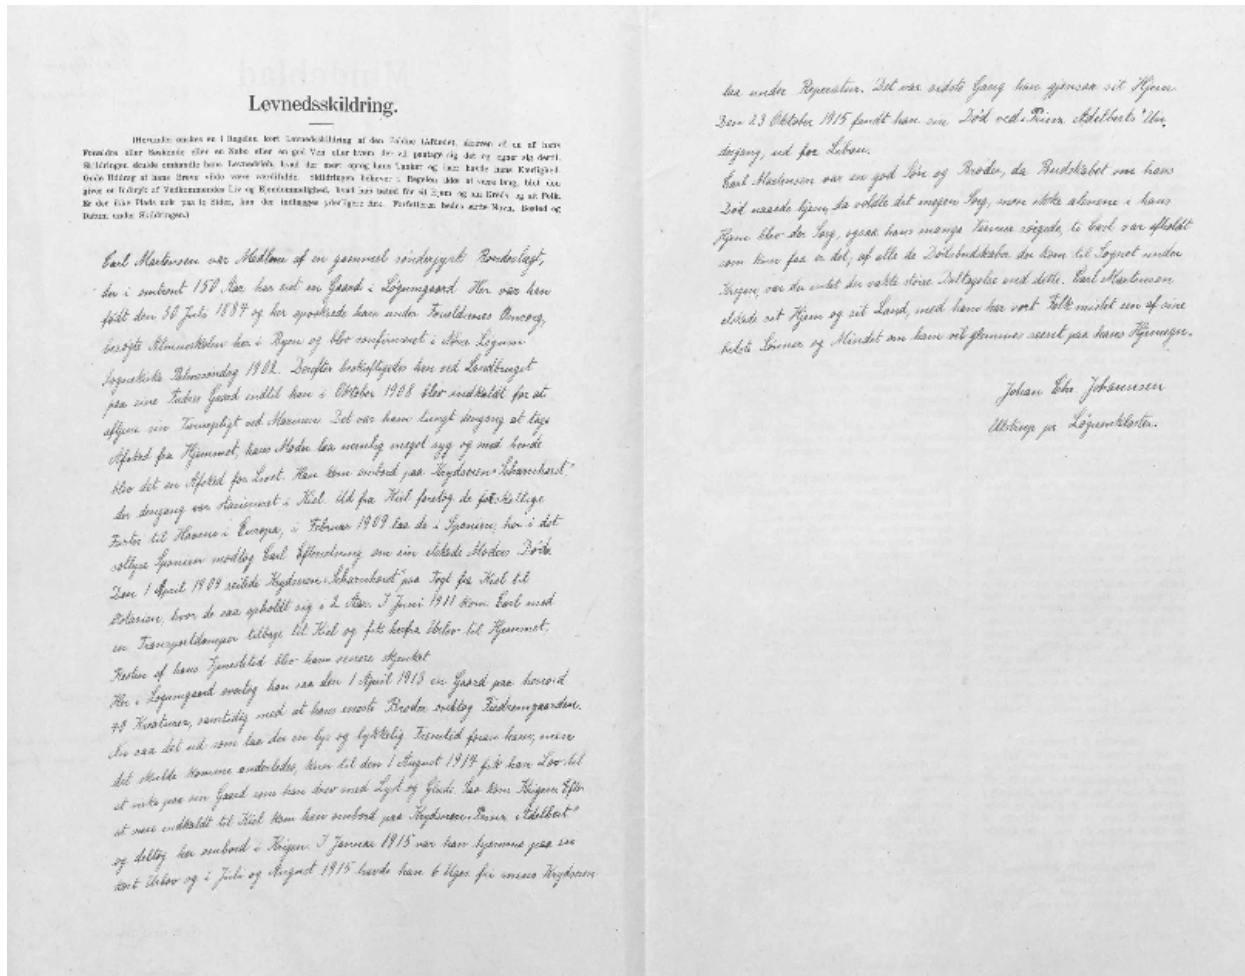 Levnedsskildring.
(Herunder ønskes en i Regelen kort Levnedsskildring af den Faldne (Afdøde), skreven af en af hans
Forældre eller Søskende eller en Nabo eller en god Ven eller hvem der vil paatage sig det og egner sig dertil.
Skildringen skulde omhandle hans Levnedsløb, hvad der mest optog hans Tanker og især havde hans Kærlighed.
Gode Uddrag af hans Breve vilde være værdifulde. Skildringen behøver i Regelen ikke at være lang, blot den
giver et Indtryk af Vedkommendes Liv og Ejendommelighed, hvad han betød for sit Hjem og sin Kreds og sit Folk.
Er der ikke Plads nok paa to Sider, kan der indlægges yderligere Ark. Forfatteren bedes sætte Navn, Bosted og
Datum under Skildringen.)
Carl Martensen var Medlem af en gammel sønderjysk Bondeslægt,
der i omtrent 150 Aar har eiet en Gaard i Løgumgaard. Her var han
født den 30 Juli 1887 og her opvoksede han under Forældrenes Omsorg,
besøgte Almueskolen her i Byen og blev konfirmeret i Nørre Løgum
Sognekirke Palmesøndag 1902. Derefter beskæftigedes han ved Landbruget
paa sine Fædres Gaard indtil han i Oktober 1908 blev indkaldt for at
aftjene sin Værnepligt ved Marinen. Det var ham tungt dengang at tage
Afsked fra Hjemmet, hans Moder laa nemlig meget syg og med hende
blev det en Afsked for Livet. Han kom ombord paa Krydseren "Scharnhorst"
der dengang var stationeret i Kiel. Ud fra Kiel foretog de forskellige
Farter til Havne i Europa, i Februar 1909 laa de i Spanien, her i det
sollyse Spanien modtog Carl Efterretning om sin elskede Moders Død.
Den 1 April 1909 seilede Krydseren "Scharnhorst" paa Togt fra Kiel til
Østasien, hvor de saa opholdt sig i 2 Aar. I Juni 1911 kom Carl med
en Transportdamper tilbage til Kiel og fik herfra Orlov til Hjemmet.
Resten af hans Tjenestetid blev ham senere skjenket
Her i Løgumgaard overtog han saa den 1 April 1913 en Gaard paa henved
40 Kreaturer, samtidig med at hans eneste Broder overtog Fædrenegaarden.
Nu saa det ud som laa der en lys og lykkelig Fremtid foran ham, men
det skulde komme anderledes, kun til den 1 August 1914 fik han Lov til
at virke paa sin Gaard som han drev med Lyst og Glæde. Saa kom Krigen. Efter
at være indkaldt til Kiel kom han ombord paa Krydseren "Prins Adelbert"
og deltog her ombord i Krigen. I Januar 1915 var han hjemme paa en
kort Orlov og i Juli og August 1915 havde han 6 Uger fri mens Krydseren
laa under Reperatur. Det var sidste Gang han gjensaa sit Hjem.
Den 23 Oktober 1915 fandt han sin Død ved "Prins Adelberts" Un-
dergang, ud for Libau.
Carl Martensen var en god Søn og Broder, da Budskabet om hans
Død naaede hjem, da voldte det megen Sorg, men ikke alene i hans
Hjem blev der Sorg, ogsaa hans mange Venner sørgede, ti Carl var afholdt
som kun faa er det, af alle de Dødsbudskaber der kom til Sognet under
Krigen, var der intet der vakte større Deltagelse end dette. Carl Martensen
elskede sit Hjem og sit Land, med ham har vort Folk mistet een af sine
bedste Sønner og Mindet om ham vil glemmes seent paa hans Hjemegn.
Johan Chr. Johannsen
Ulstrup pr Løgumkloster.